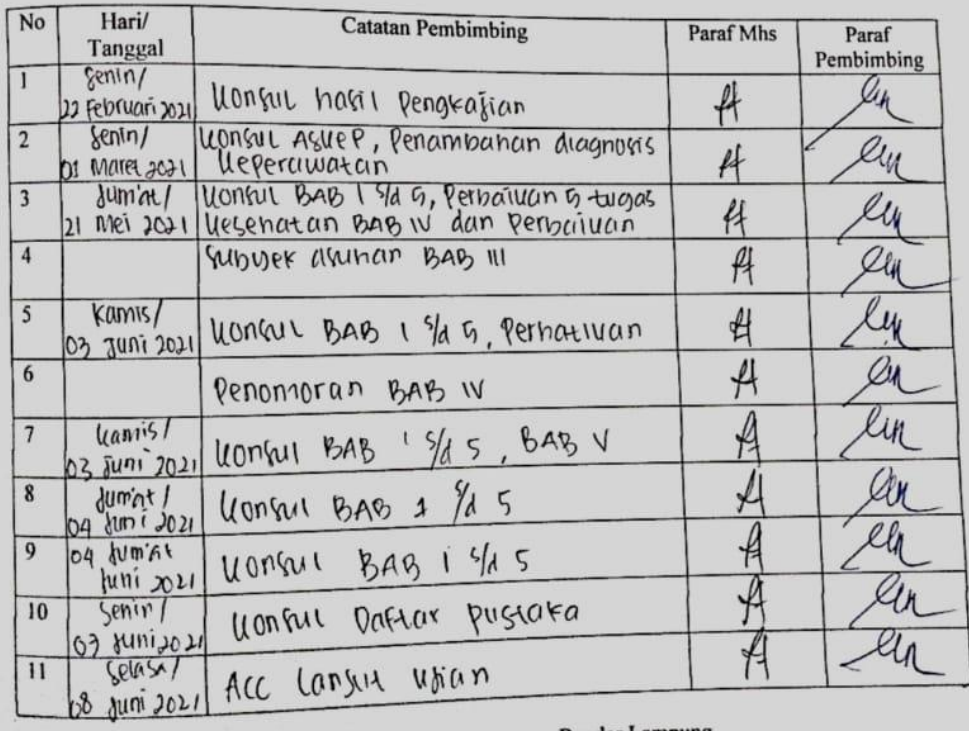 No Hari/ Tanggal Catatan Pembimbing Paraf Mhs Paraf Pembimbing
1 Senin/ 22 Februari 2021 Konsul hasil Pengkajian
2 Senin/ 01 Maret 2021 Konsul ASKEP, Penambahan diagnosis Keperawatan
3 Jum'at/ 21 Mei 2021 Konsul BAB 1 s/d 5, Perbaikan 5 tugas Kesehatan BAB IV dan Perbaikan
4 Subyek asuhan BAB III
5 Kamis/ 03 Juni 2021 Konsul BAB 1 s/d 5, Perhatikan
6 Penomoran BAB IV
7 Kamis/ 03 Juni 2021 Konsul BAB 1 s/d 5, BAB V
8 Jum'at/ 04 Juni 2021 Konsul BAB 1 s/d 5
9 04 Jum'at Juni 2021 Konsul BAB 1 s/d 5
10 Senin/ 07 Juni 2021 Konsul Daftar Pustaka
11 Selasa/ 08 Juni 2021 Acc Lanjut Ujian